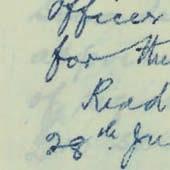 officer
for the
Read
28th Ju